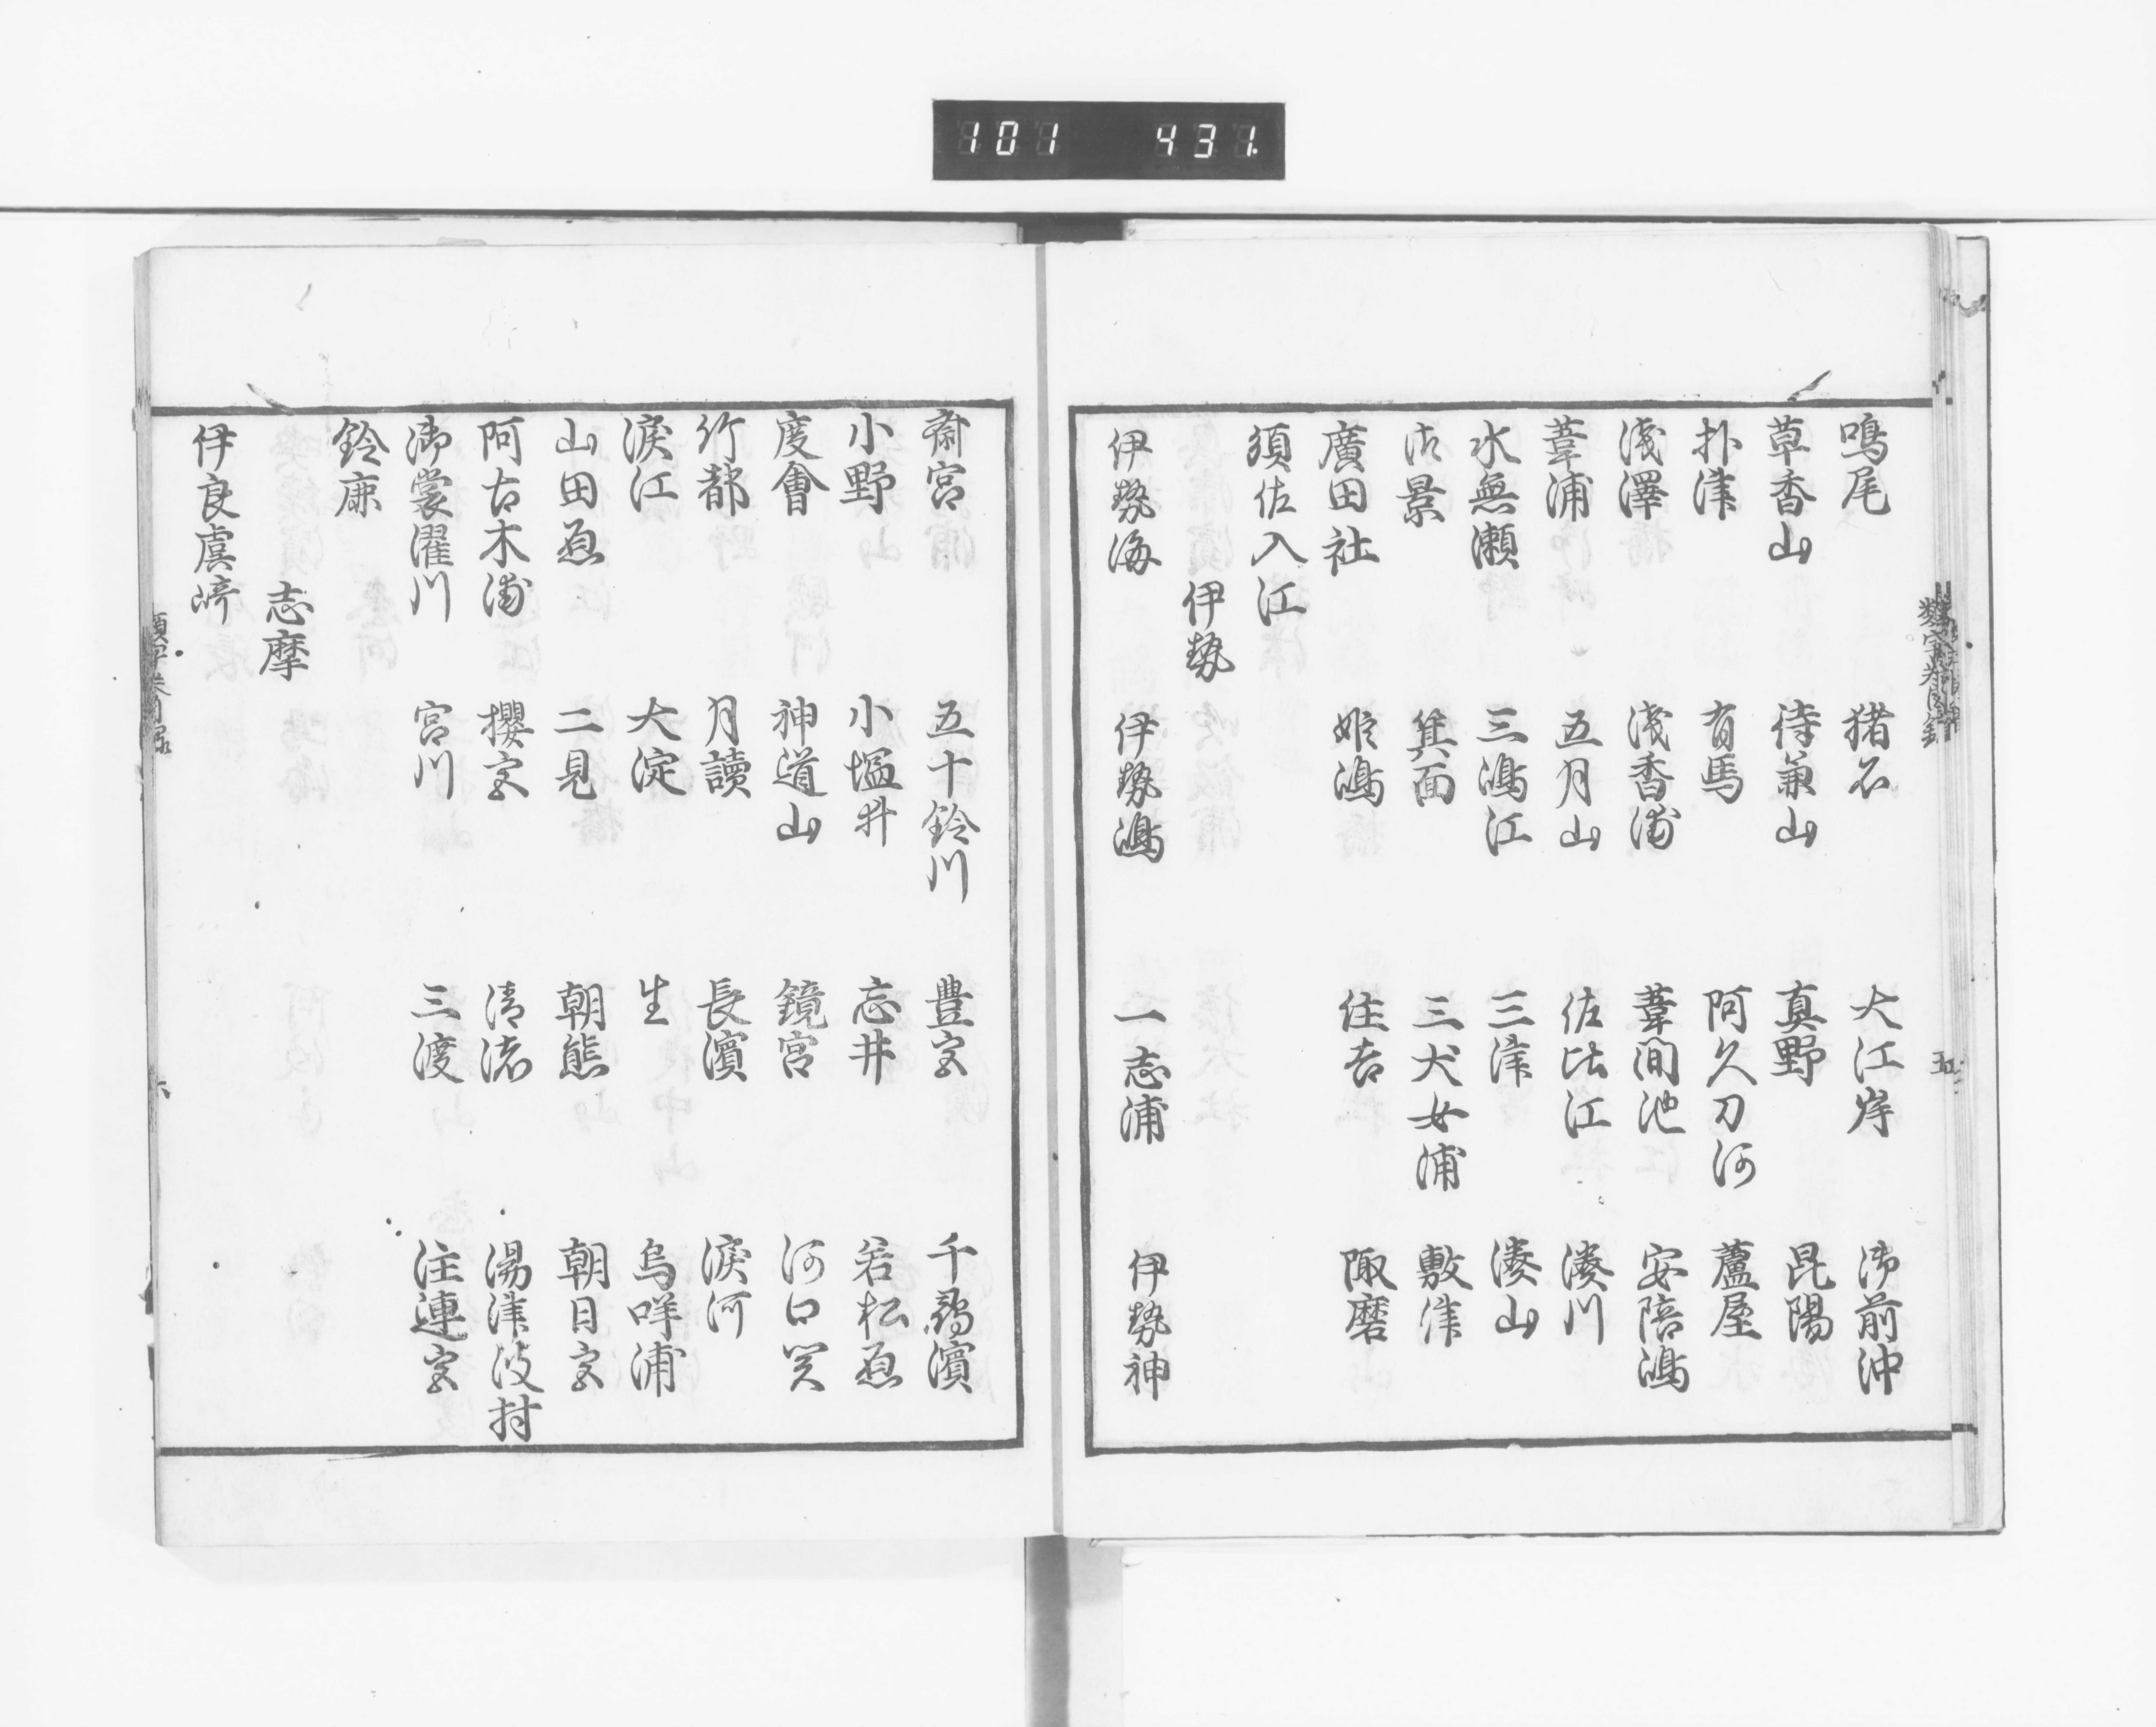 101 431
鳴尾 猪名 大江岸 御前沖
草香山 待兼山 真野 昆陽
朴津 有馬 阿久刀河 蘆屋
淺澤 淺香浦 葦間池 安陪嶋
葦浦 五月山 佐比江 湊川
水無瀬 三嶋江 三津 湊山
箕面 三犬女浦 敷津
廣田社 姫嶋 住吉 陬磨
須佐入江
伊勢
伊勢海 伊勢嶋 一志浦 伊勢神
五
齋宮 五十鈴川 豊宮 千尋濱
小野 小塩井 忘井 若松原
度會 神道山 鏡宮 河口関
竹都 月讀 長濱 涙河
涙江 大淀 生 烏咩浦
山田原 二見 朝熊 朝日宮
阿古木浦 櫻宮 清渚 湯津波村
御裳濯川 宮川 三渡 注連宮
鈴鹿
志摩
伊良虞崎